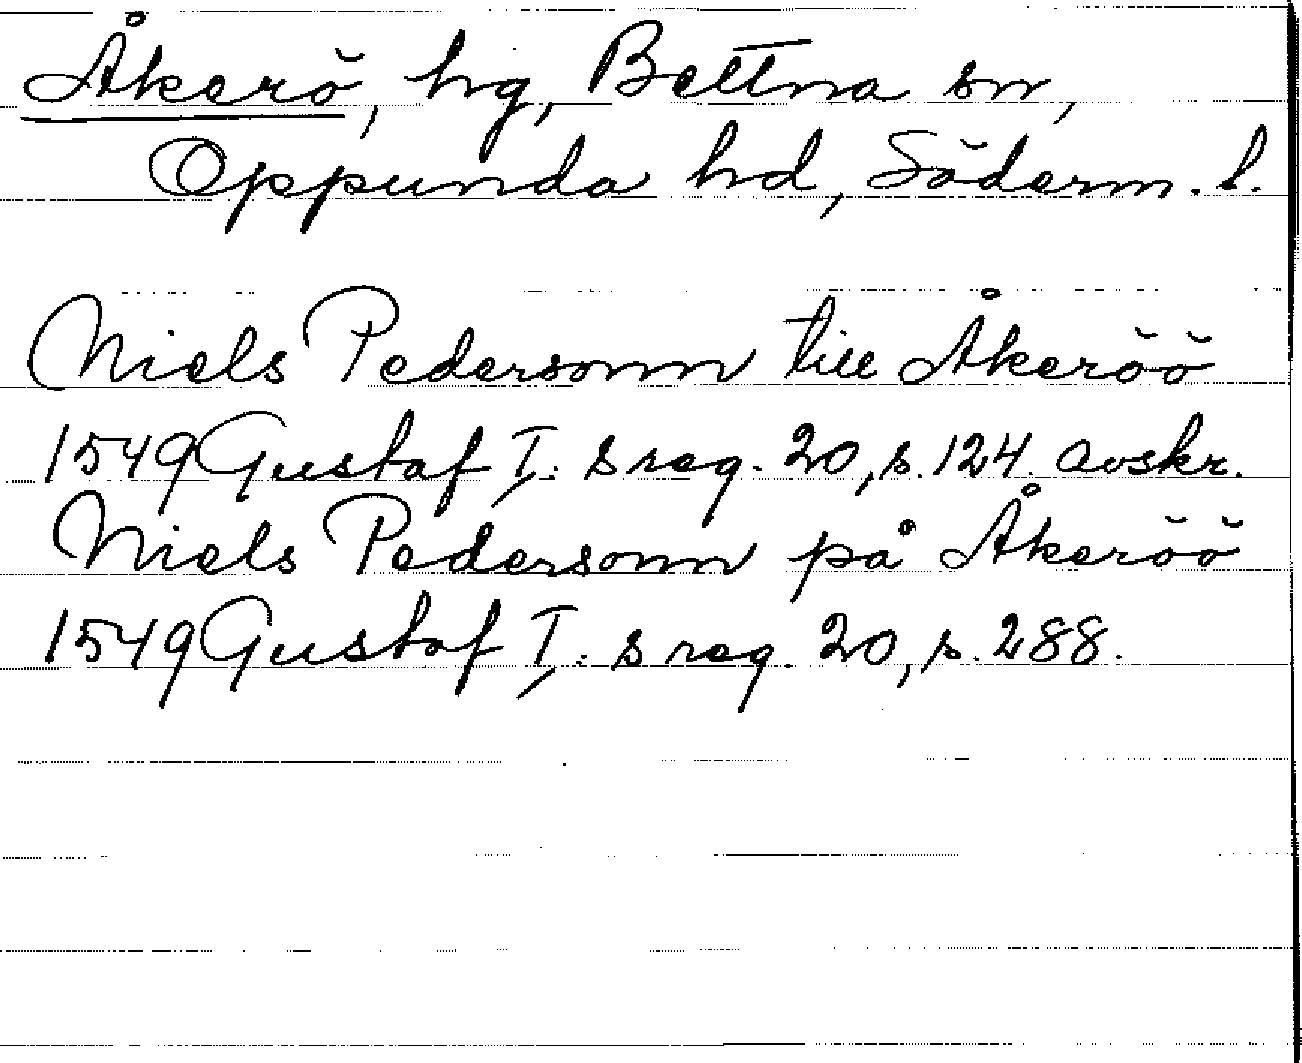 Åkerö, hg, Bettna sn,
Oppunda hd, Söderm. l.
Niels Pedersonn till Åkeröö
1549 Gustaf I: s reg. 20, s. 124. avskr.
Niels Pedersonn på Åkeröö
1549 Gustaf I: s reg. 20, s. 288.